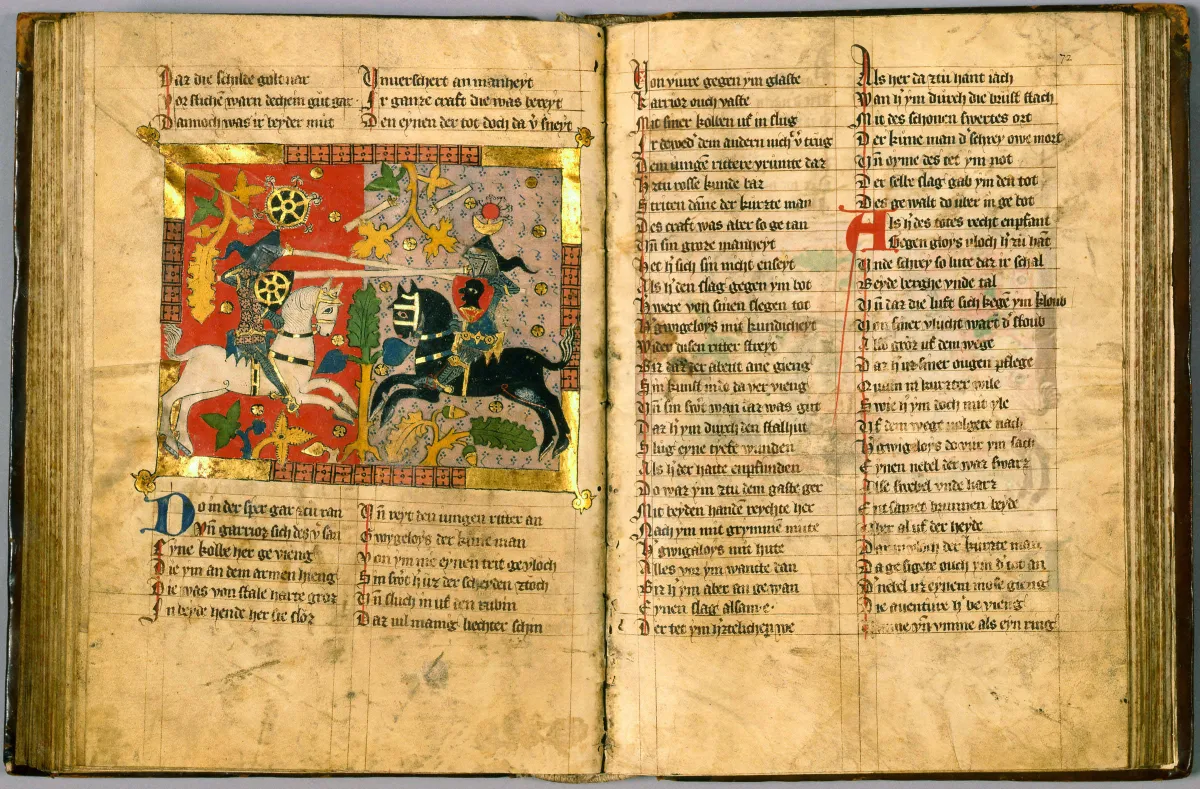 Daz die schilde golt var
Vor stichē warn dechein gůt gar
Dannoch was ir beyder můt
Vnuerschert an manheyt
Ir ganze craft die was bereyt
Den eynen der tot doch da v̾sneyt
Do in der sper gar zůran
Vn̄ garrior sich des v̾san
Eyne kolbe her gevieng
Die ym an dem armen hieng
Die was von stale harte groz
In beyde hende her sie sloz
Vn̄ reyt den iungen ritter an
Gwygeloys der kůne man
Von ym nie eynen trit gevloch
Sin swͦt h̾ uz der scheyden ztoch
Vn̄ slůch in uf den rubin
Daz vil manig liechter schin
Von viure gegen ym glaste
Karrior ouch vaste
Mit siner kolben uf in slug
Dem iungē rittere
H̾ztu rosse kunde baz
Striten dāne der kurzte man
Des craft was aber so getan
Vn̄ sin groze manheyt
Het h̾ sich sin nicht
Als h̾ den slag gegen ym bot
H̾ were von sinen slegen tot
H̾ gwigeloys mit kundicheyt
Wider disen ritter streyt
Biz daz der abent ane gieng
Sin kunst in
Vn̄ sin swͦt wan daz was gůt
Daz h̾ ym durch den stalhůt
Slůg eyne tyefe wunden
Als h̾ der hatte enpfunden
Do waz ym ztu dem gaste ger
Mit beyden handē reychte her
Nach ym mit grymmē můte
H̾ gwigaloys mit hůte
Alles vor ym wancte dan
Biz h̾ ym aber an gewan
Eynen slag alsam e
Der tet ym h̾tzelichen we
72
Als her daztu hant sach
Wan h̾ ym durch die brust stach
Mit des schonen swertes ort
Der kůne man d̾ schrey owe mort
Vn̄ des tet ym not
Der selbe slag gab ym den tot
Des gewalt do uber in gebot
Als h̾ des totes recht enpfant
Gegen gloys vloch h̾ zů hāt
Vnde schrey so lute daz ir schal
Beyde berghe vnde tal
Vn̄ daz die luft sich kegē ym kloub
Von siner vlucht wart d̾ stoub
Also groz uf dem wege
Daz h̾ uz siner ougen pflege
Quam in kurzter wile
Swie h̾ ym doch mit yle
Uf dem wege volgete nach
H̾ gwigeloys do vor ym sach
Eynen nebel der waz swarz
Alse swebel vnde harz
Entsamet brunnen beyde
Vber al uf der heyde
Dar vloch der kurzte man
Da gesigete ouch ym d̾ tot an
D̾ nebel uz eynem mose gieng
Die auenture h̾ bevieng
vn̄ vmme als eyn ring